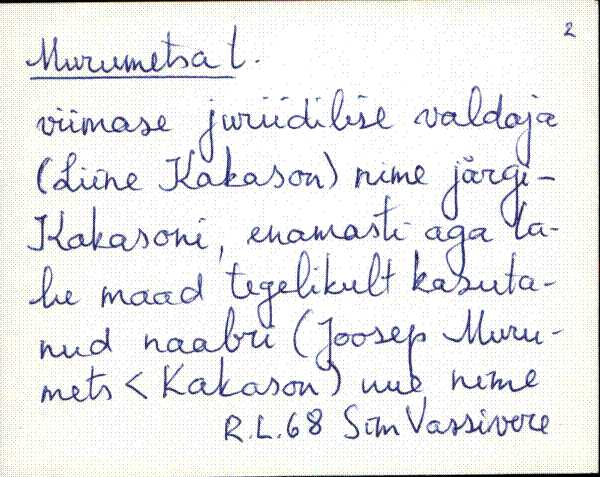 2
Murumetsa t.
viimase juriidilise valdaja
(Liine Kakason) nime järgi-
Kakasoni, enamasti aga ta-
he maad tegelikult kasuta-
nud naabri (Joosep Muru-
mets < Kakason) uue nime
R.L.68 Sim Vassivere